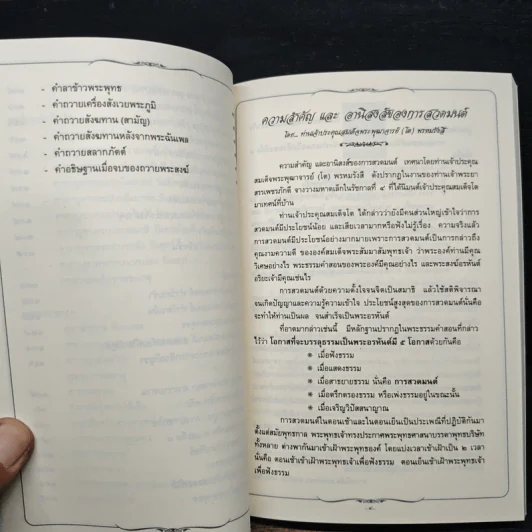 - คำลาข้าวพระพุทธ
- คำถวายเครื่องสังเวยพระภูมิ
- คำถวายสังฆทาน (สามัญ)
- คำถวายสังฆทานหลังจากพระฉันเพล
- คำถวายสลากภัตต์
- คำอธิษฐานเมื่อจบของถวายพระสงฆ์
ความสำคัญ และ อานิสงส์ของการสวดมนต์
โดย.. ท่านเจ้าประคุณสมเด็จพระพุฒาจารย์ (โต) พรหมรังสี
ความสำคัญ และอานิสงส์ของการสวดมนต์ เทศนาโดยท่านเจ้าประคุณ
สมเด็จพระพุฒาจารย์ (โต) พรหมรังสี ดังปรากฏในงานของท่านเจ้าพระยา
สรรเพชรภักดี จางวางมหาดเล็กในรัชกาลที่ ๔ ที่ได้นิมนต์เจ้าประคุณสมเด็จโต
มาเทศน์ที่บ้าน
ท่านเจ้าประคุณสมเด็จโต ได้กล่าวว่ายังมีคนส่วนใหญ่เข้าใจว่าการ
สวดมนต์มีประโยชน์น้อย และเสียเวลามากหรือฟังไม่รู้เรื่อง ความจริงแล้ว
การสวดมนต์มีประโยชน์อย่างมากมายเพราะการสวดมนต์เป็นการกล่าวถึง
คุณงามความดี ขององค์สมเด็จพระสัมมาสัมพุทธเจ้า ว่าพระองค์ท่านมีคุณ
วิเศษอย่างไร พระธรรมคำสอนของพระองค์มีคุณอย่างไร และพระสงฆ์อรหันต์
อริยะเจ้ามีคุณเช่นไร
การสวดมนต์ด้วยความตั้งใจจนจิตเป็นสมาธิ แล้วใช้สติพิจารณา
จนเกิดปัญญาและความรู้ความเข้าใจ ประโยชน์สูงสุดของการสวดมนต์นั่นคือ
จะทำให้ท่านเป็นผล จนสำเร็จเป็นพระอรหันต์
ที่อาตมากล่าวเช่นนี้ มีหลักฐานปรากฏในพระธรรมคำสอนที่กล่าว
ไว้ว่า โอกาสที่จะบรรลุธรรมเป็นพระอรหันต์มี ๕ โอกาสด้วยกันคือ
● เมื่อฟังธรรม
● เมื่อแสดงธรรม
● เมื่อสาธยายธรรม นั่นคือ การสวดมนต์
● เมื่อตรึกตรองธรรม หรือเพ่งธรรมอยู่ในขณะนั้น
● เมื่อเจริญวิปัสสนาญาณ
การสวดมนต์ในตอนเช้าและในตอนเย็นเป็นประเพณีที่ปฏิบัติกันมา
ตั้งแต่สมัยพุทธกาล พระพุทธเจ้าทรงประกาศพระพุทธศาสนาบรรดาพุทธบริษัท
ทั้งหลาย ต่างพากันมาเข้าเฝ้าพระพุทธองค์ โดยแบ่งเวลาเข้าเฝ้าเป็น ๒ เวลา
นั่นคือ ตอนเช้าเข้าเฝ้าพระพุทธเจ้าเพื่อฟังธรรม ตอนเย็นเข้าเฝ้าพระพุทธเจ้า
เพื่อฟังธรรม